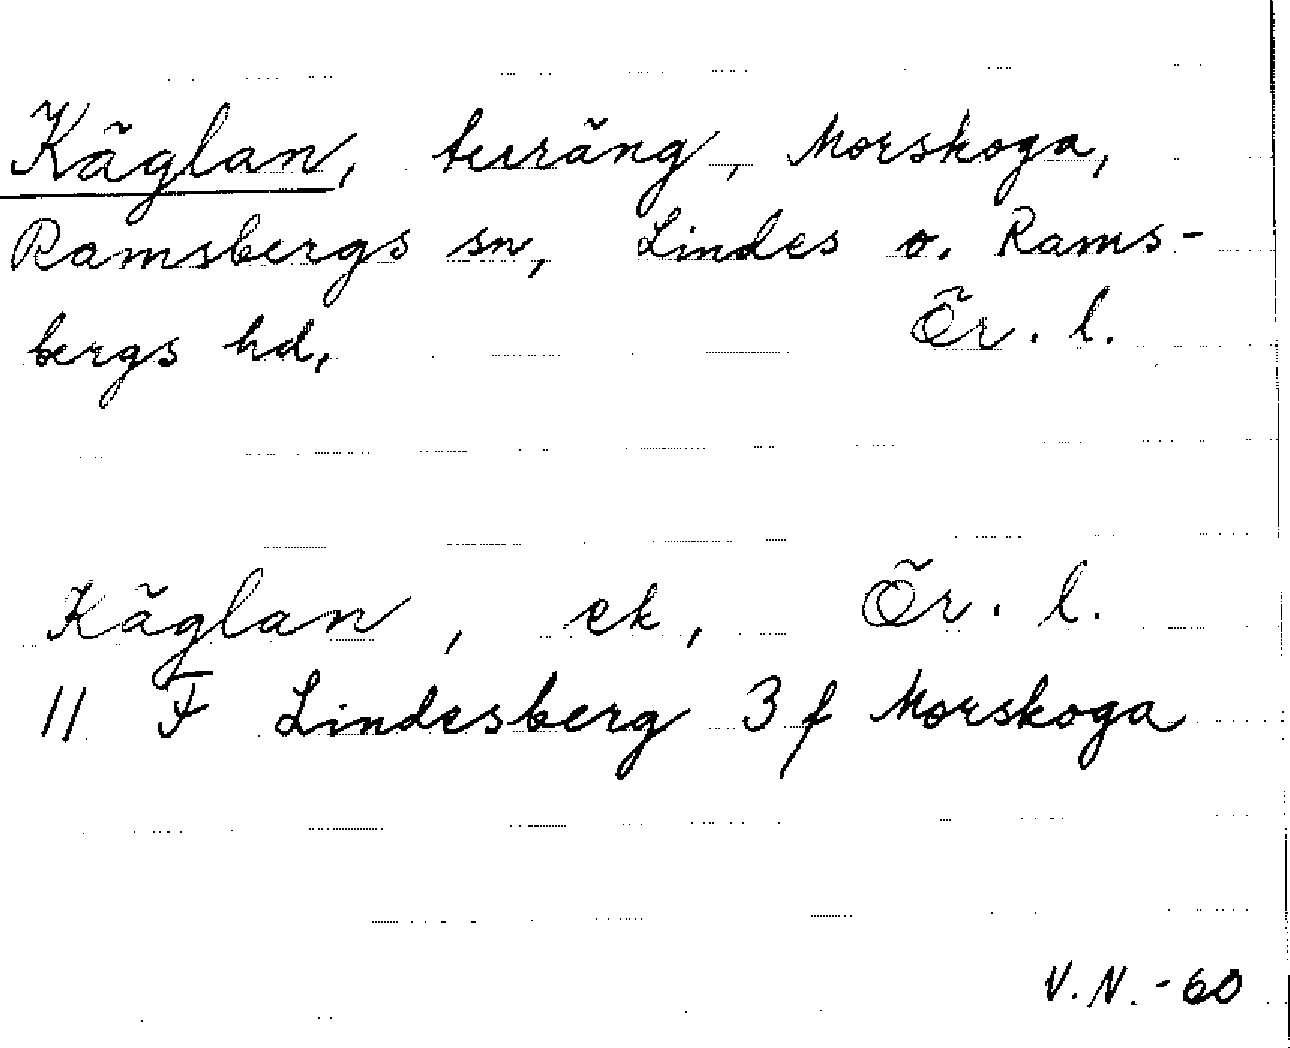 Käglan, terräng, Morskoga,
Ramsbergs sn, Lindes o. Rams-
bergs hd, Ör. l.
Käglan, ek, Ör. l.
11 F Lindesberg 3 f Morskoga
V.N. -60